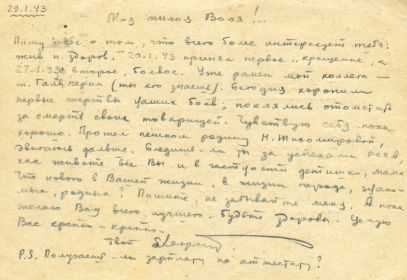 29.1.43
Моя милая Валя!...
Пишу тебе о том, что всего более интересует тебя:
жив и здоров. 20.1.43 принял первое „крещение", а
27.1.43 второе, боевое. Уже ранен мой коллега –
т. Гальперин (ты его знаешь). Сегодня хоронили
первые жертвы наших боев, поклялись отомстить
за смерть своих товарищей. Чувствую себя пока
хорошо. Прошел пешком родину Н. Тихомировой,
двигаюсь дальше. Следишь ли ты за успехами РККА,
как живете все Вы и в частности детишки, мама
Что нового в Вашей жизни, в жизни города, знако-
мых, родных? Пишите, не забывайте меня, А пока
желаю Вам всего лучшего. Будьте здоровы. Целую
Вас крепко-крепко.
Твой
P.S. Получаешь ли зарплату по аттестату?